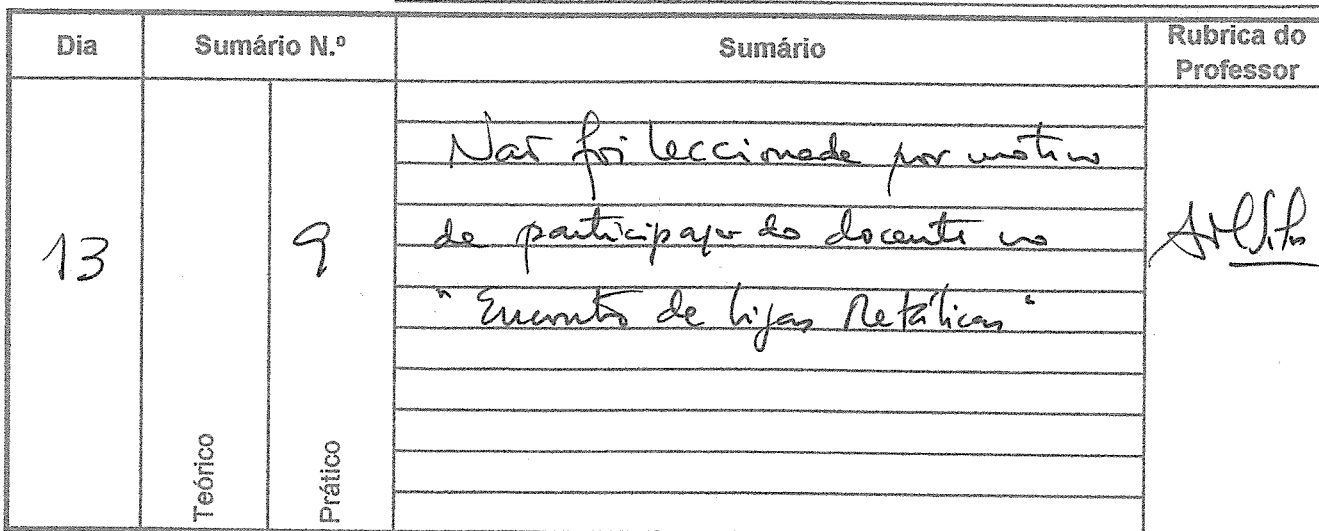 Dia Sumário N.º Sumário Rubrica do Professor
Teórico
Prático
13 9
Não foi leccionada por motivo
de participação do docente no
"Encontro de Ligas Metálicas"